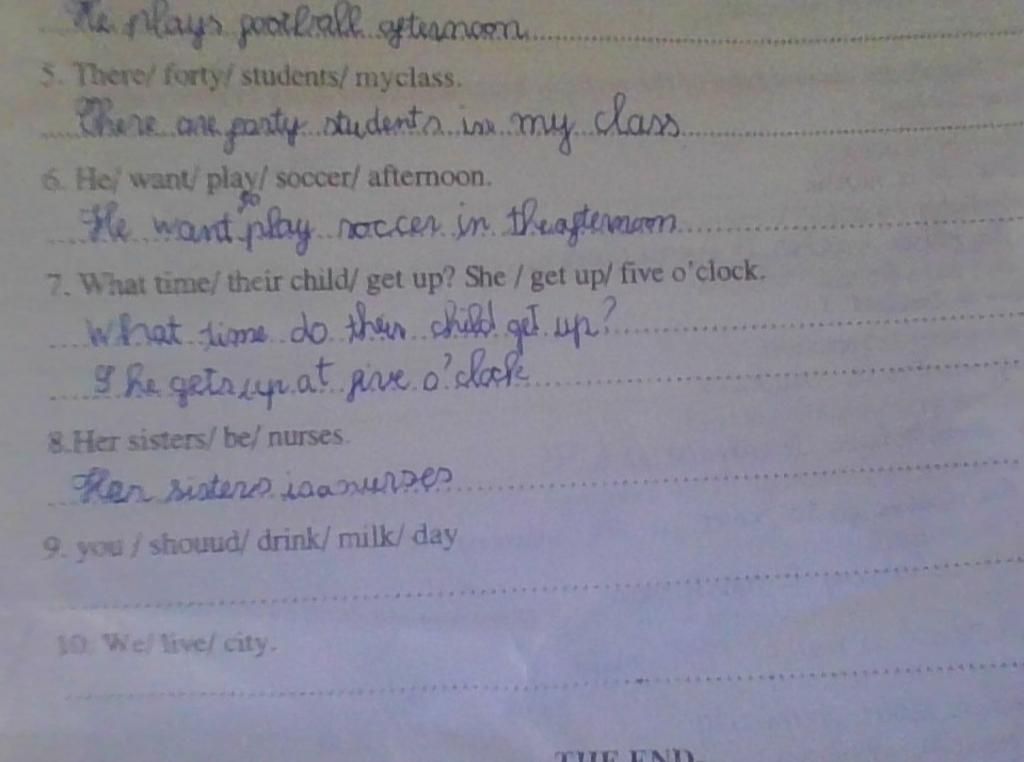 He plays football afternoon
5. There/ forty/ students/ myclass.
There are forty students in my class
6. He/ want/ play/ soccer/ afternoon.
to
He want play soccer in the afternoon
7. What time/ their child/ get up? She / get up/ five o'clock.
What time do their child get up?
She gets up at five o'clock
8.Her sisters/ be/ nurses.
Her sisters is a nurses
9. you / shouud/ drink/ milk/ day
10. We/ live/ city.
THE END